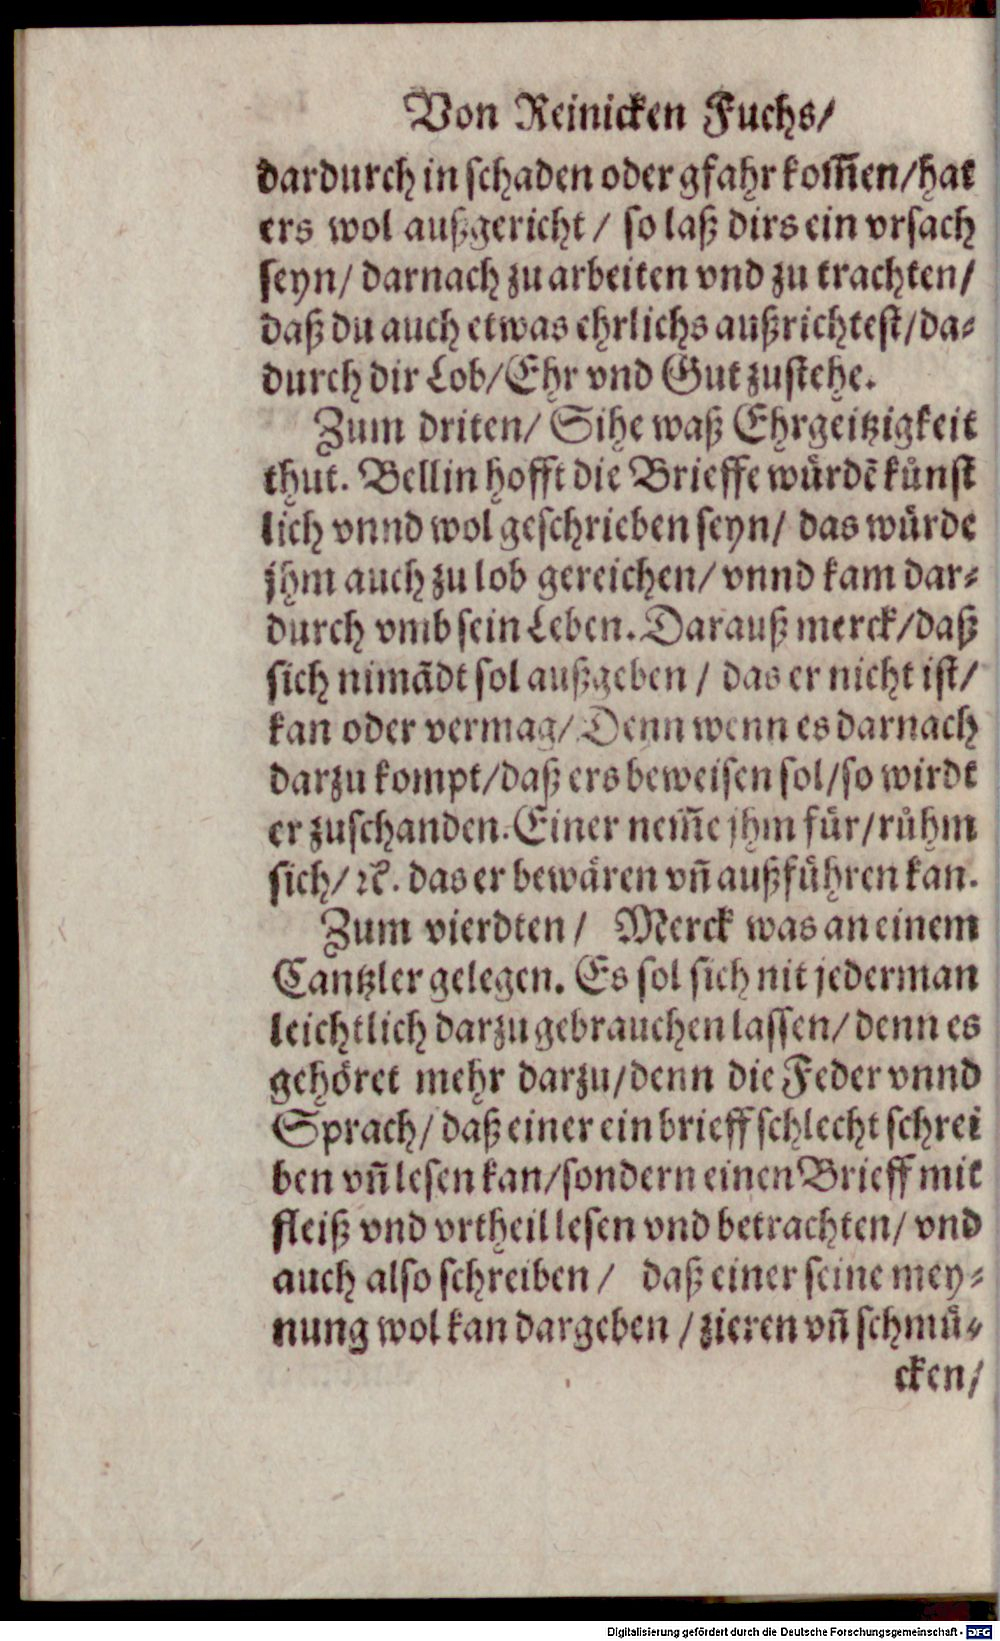 Von Reinicken Fuchs/
dardurch in schaden oder gfahr kom̃en/hat
ers wol außgericht / so laß dirs ein vrsach
seyn/ darnach zu arbeiten vnd zu trachten/
daß du auch etwas ehrlichs außrichtest/da⸗
durch dir Lob/Ehr vnd Gut zustehe.
Zum driten/ Sihe waß Ehrgeitzigkeit
thut. Bellin hofft die Brieffe wuͤrdẽ kuͤnst
lich vnnd wol geschrieben seyn/ das wuͤrde
jhm auch zu lob gereichen/ vnnd kam dar⸗
durch vmb sein Leben. Darauß merck/daß
sich nimãdt sol außgeben / das er nicht ist/
kan oder vermag/ Denn wenn es darnach
darzu kompt/daß ers beweisen sol/so wirdt
er zuschanden. Einer nem̃e jhm fuͤr/ruͤhm
sich/ ꝛc. das er bewaͤren vñ außfuͤhren kan.
Zum vierdten / Merck was an einem
Cantzler gelegen. Es sol sich nit jederman
leichtlich darzu gebrauchen lassen/ denn es
gehoͤret mehr darzu/denn die Feder vnnd
Sprach/ daß einer ein brieff schlecht schrei
ben vñ lesen kan/sondern einen Brieff mit
fleiß vnd vrtheil lesen vnd betrachten/ vnd
auch also schreiben / daß einer seine mey⸗
nung wol kan dargeben / zieren vñ schmuͤ⸗
cken/
Digitalisierung gefördert durch die Deutsche Forschungsgemeinschaft - DFG